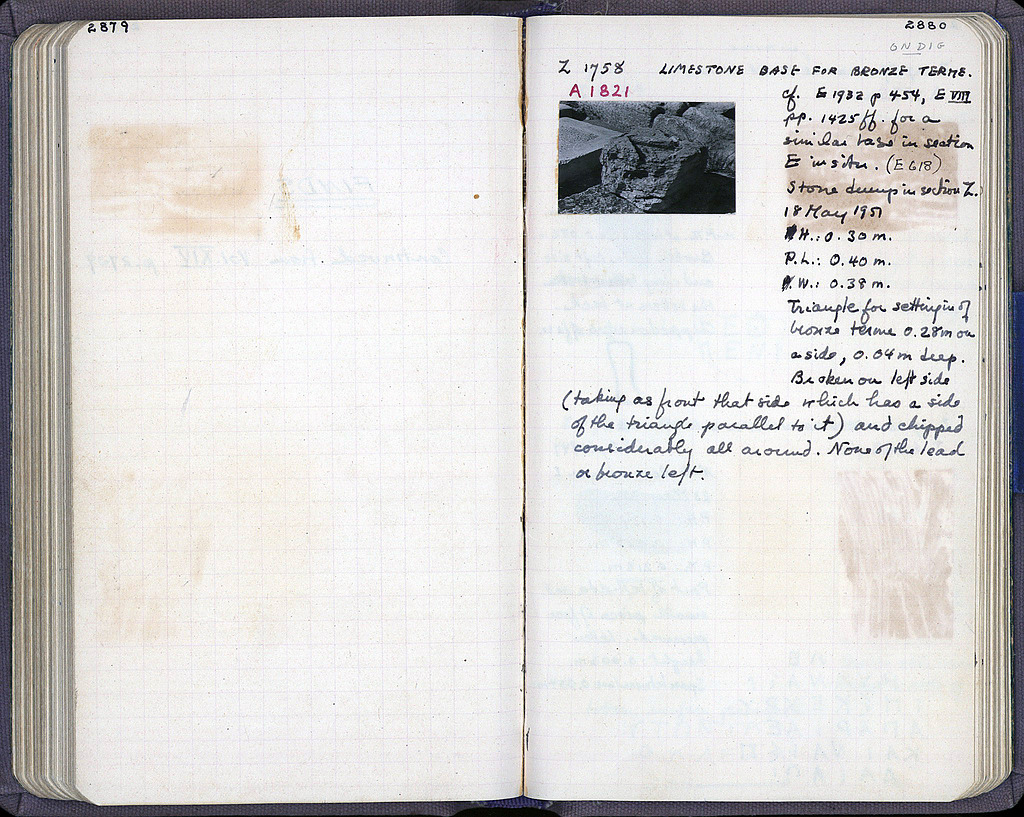 2879
2880
ON DIG
Z 1758 LIMESTONE BASE FOR BRONZE TERME.
A 1821
cf. E 1932 p 454, E VIII
pp. 1425 ff. for a
similar base in section
E in situ. (E 618)
Stone dump in section Z.
18 May 1951
H.: 0.30 m.
P.L.: 0.40 m.
W.: 0.38 m.
Triangle for setting in of
bronze terme 0.28m on
a side, 0.04m deep.
Broken on left side
(taking as front that side which has a side
of the triangle parallel to it) and chipped
considerably all around. None of the lead
or bronze left.